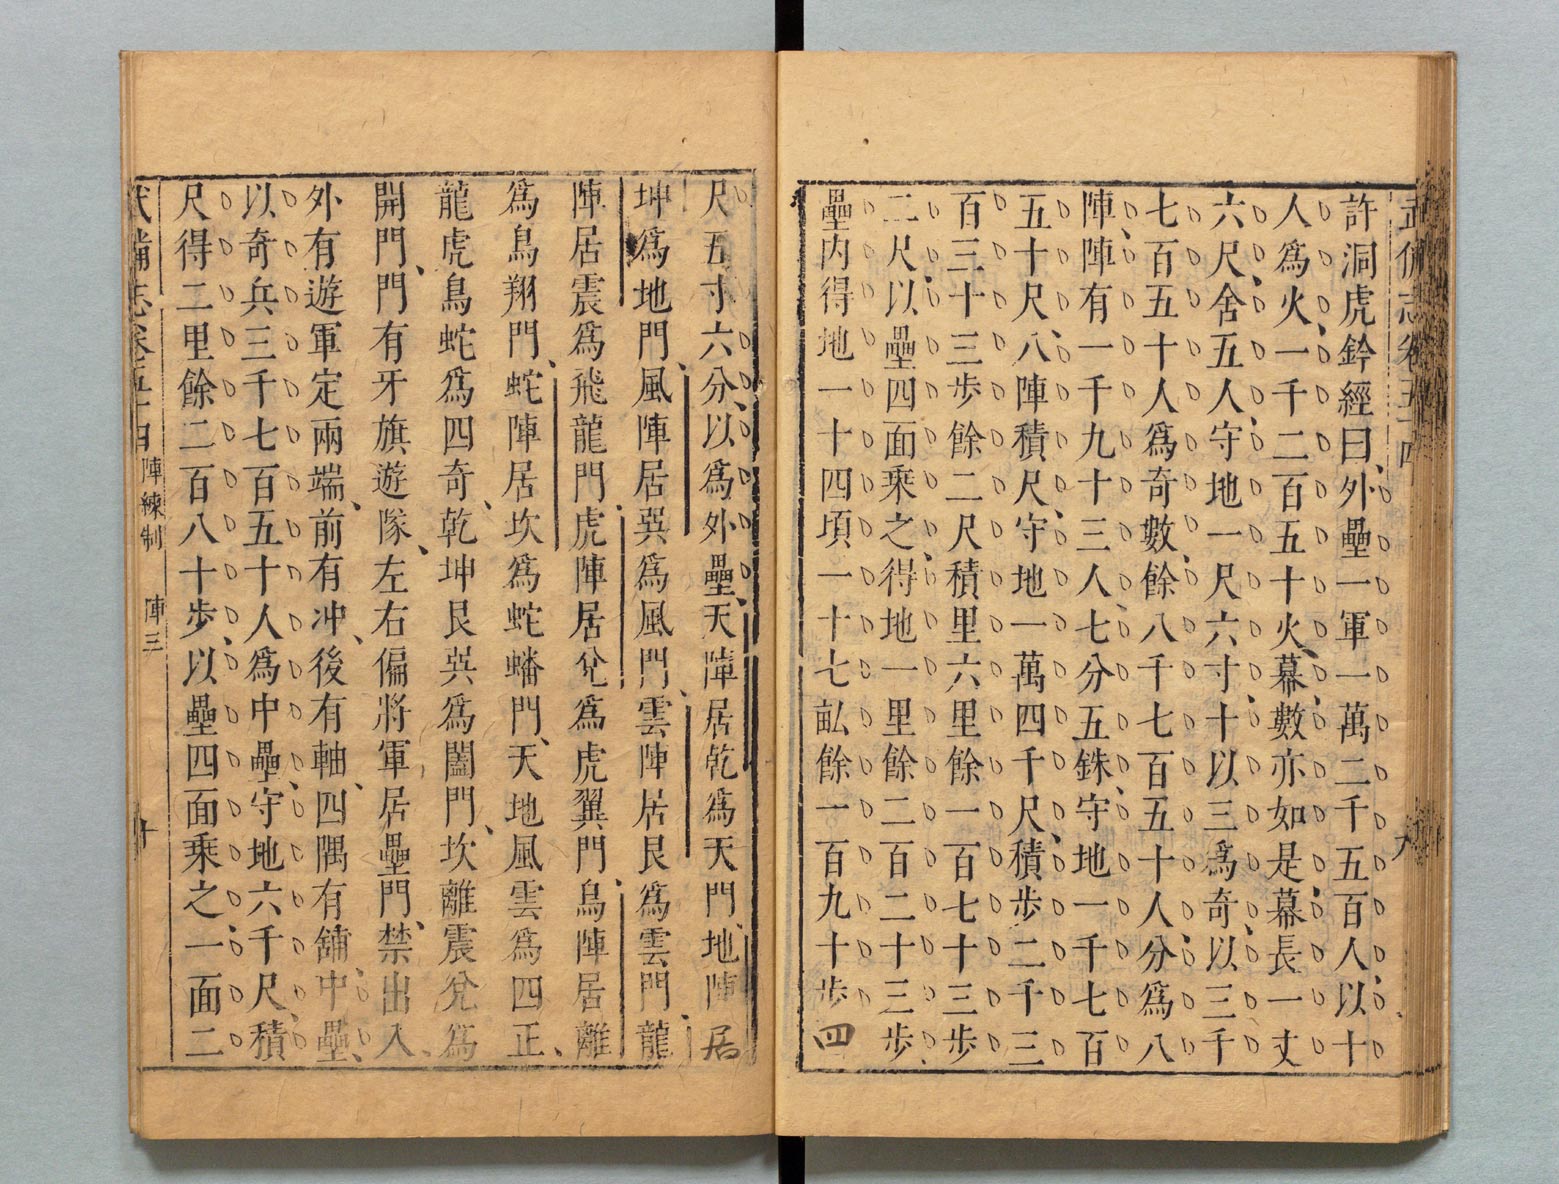 武備志卷五十四
許洞虎鈐經曰外壘一軍一萬二千五百人以十
人爲火一千二百五十火幕數亦如是幕長一丈
六尺舍五人守地一尺六寸十以三爲奇以三千
七百五十人爲奇數餘八千七百五十人分爲八
陣陣有一千九十三人七分五銖守地一千七百
五十尺八陣積尺守地一萬四千尺積步二千三
百三十三步餘二尺積里六里餘一百七十三步
二尺以壘四面乘之得地一里餘二百二十三步
壘內得地一十四頃一十七畝餘一百九十步四
九
尺五寸六分以爲外壘天陣居乾爲天門地陣居
坤爲地門風陣居巽爲風門雲陣居艮爲雲門龍
陣居震爲飛龍門虎陣居兌爲虎翼門鳥陣居離
爲鳥翔門蛇陣居坎爲蛇蟠門天地風雲爲四正
龍虎鳥蛇爲四奇乾坤艮巽爲闔門坎離震兌爲
開門門有牙旗遊隊左右偏將軍居壘門禁出入
外有遊軍定兩端前有冲後有軸四隅有鋪中壘
以奇兵三千七百五十人爲中壘守地六千尺積
尺得二里餘二百八十步以壘四面乘之一面二
武備志卷五十四 陣練制 陣三 十